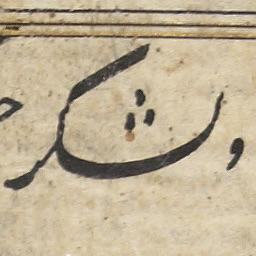 و لشکر